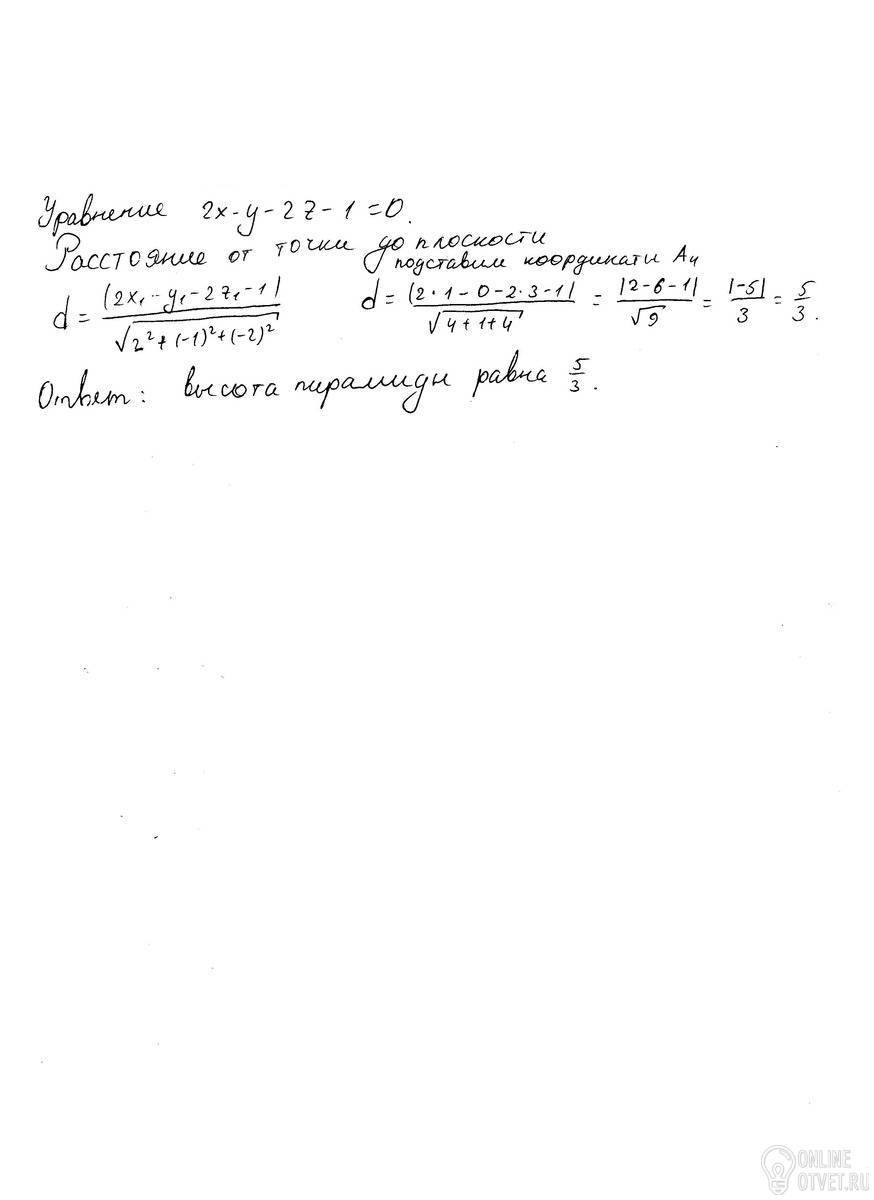 Уравнение 2x-y-2z-1=0.
Расстояние от точки до плоскости
подставим координаты A₄
d = |2x₁-y₁-2z₁-1| / √(2²+(-1)²+(-2)²)   d = |2·1-0-2·3-1| / √(4+1+4) = |2-6-1| / √9 = |-5| / 3 = 5/3.
Ответ: высота пирамиды равна 5/3.
ONLINE
OTVET.RU